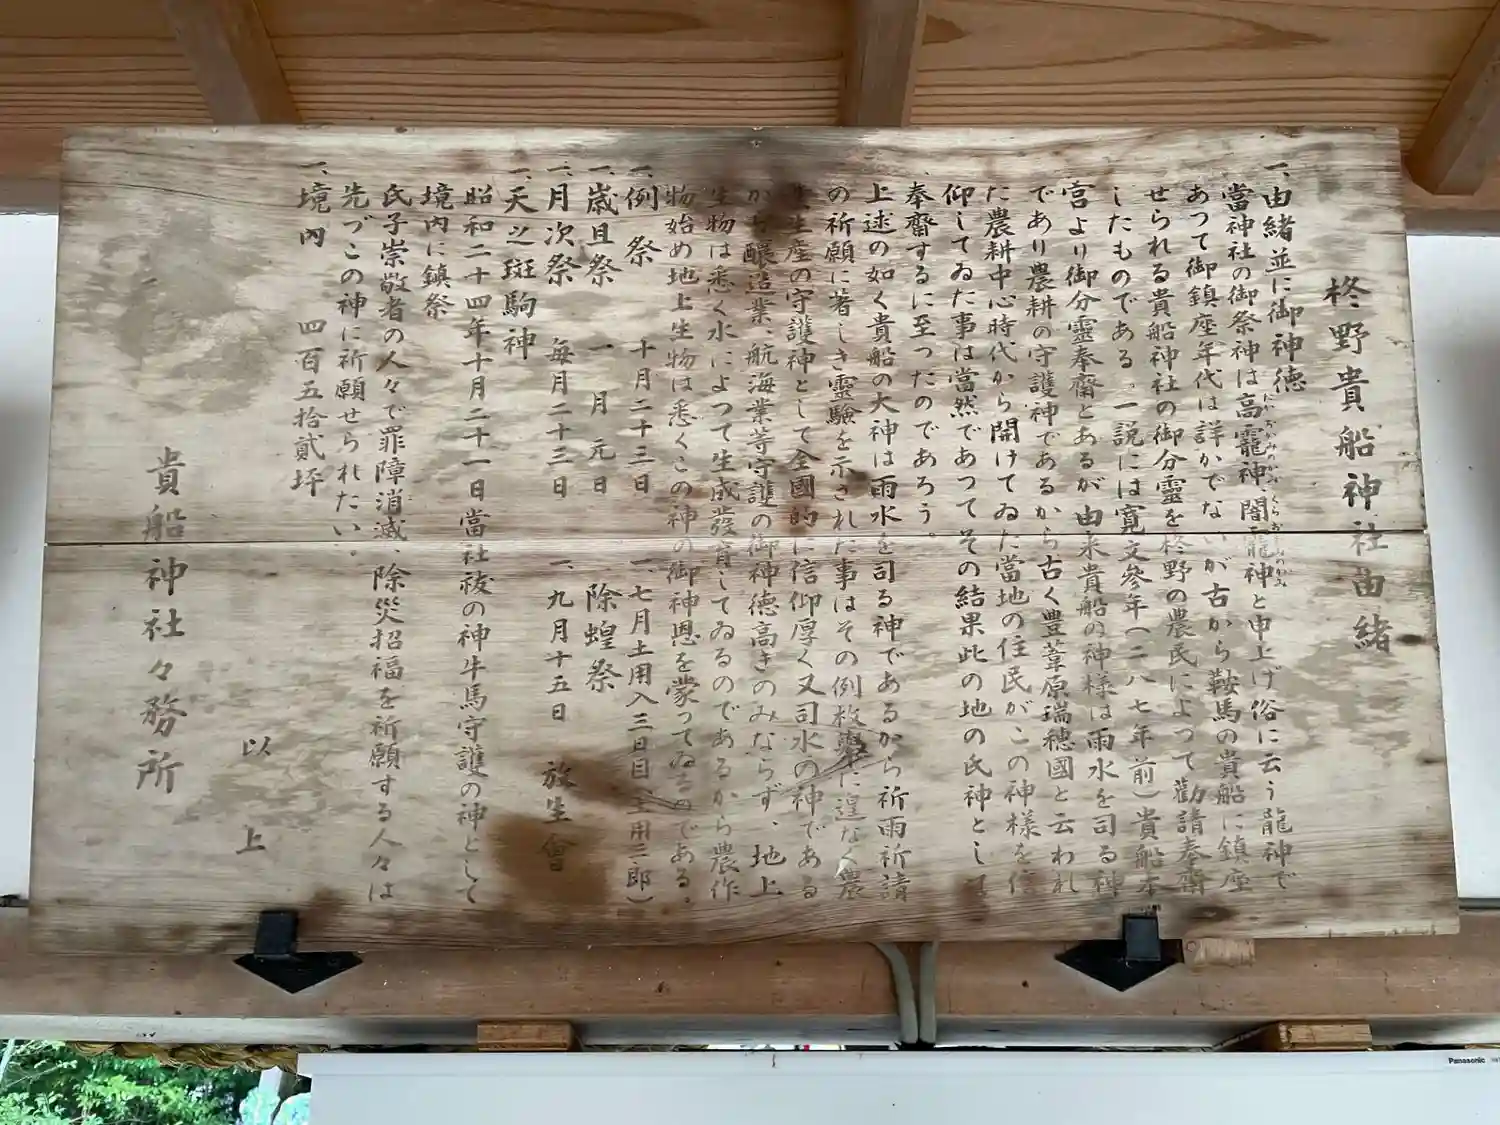 柊野貴船神社由緒
一、由緒並に御神徳
當神社の御祭神は高龗神、闇龗神と申上げ俗に云う龍神で
あつて御鎮座年代は詳かでないが古から鞍馬の貴船に鎮座
せられる貴船神社の御分靈を柊野の農民によつて勸請奉齋
したものである。一説には寛文參年(二八七年前)貴船本
宮より御分靈奉齋とあるが由来貴船の神様は雨水を司る神
であり農耕の守護神であるから古く豊葦原瑞穂國と云われ
た農耕中心時代から開けてゐた當地の住民がこの神様を信
仰してゐた事は當然であつてその結果此の地の氏神として
奉齋するに至つたのであろう。
上述の如く貴船の大神は雨水を司る神であるから祈雨祈請
の祈願に著しき靈驗を示された事はその例枚擧に遑なく農
生産の守護神として全國的に信仰厚く又司水の神である
から醸造業、航海業等守護の御神徳高きのみならず、地上
生物は悉く水によつて生成發育してゐるのであるから農作
物始め地上生物は悉くこの神の御神恩を蒙つてゐるのである。
一、例祭 十月二十三日 一、七月土用入三日目(土用三郎)
一、歳旦祭 一月元日 除蝗祭
一、月次祭 毎月二十三日 一、九月十五日 放生會
一、天之斑駒神
昭和二十四年十月二十一日當社祓の神牛馬守護の神として
境内に鎮祭
氏子崇敬者の人々で罪障消滅、除災招福を祈願する人々は
先づこの神に祈願せられたい。
一、境内 四百五拾貳坪
以上
貴船神社々務所
Panasonic